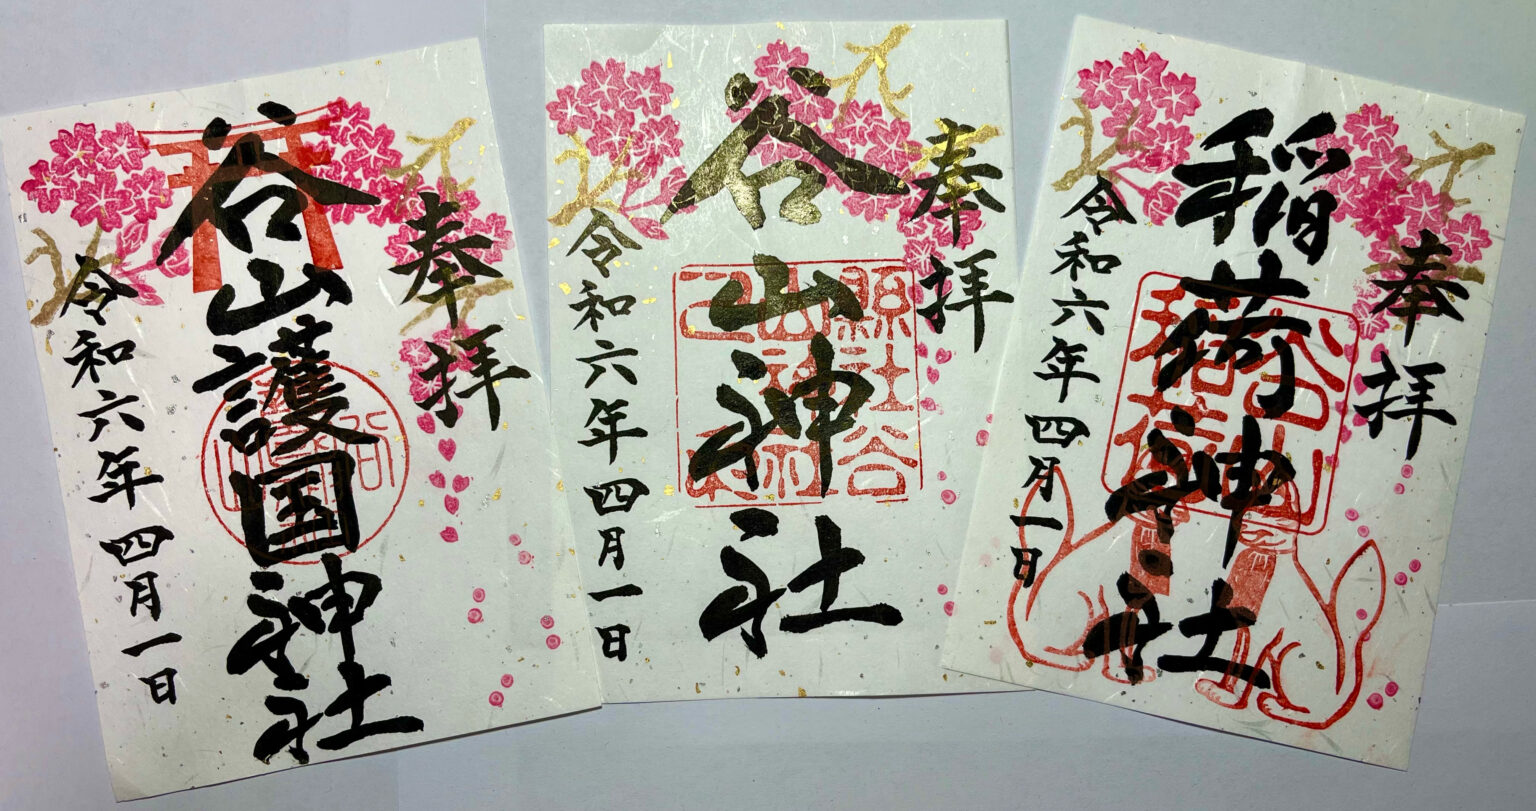 奉拝
谷山護国神社
令和六年四月一日
奉拝
谷山神社
縣社谷
山神社
令和六年四月一日
奉拝
稲荷神社
令和六年四月一日